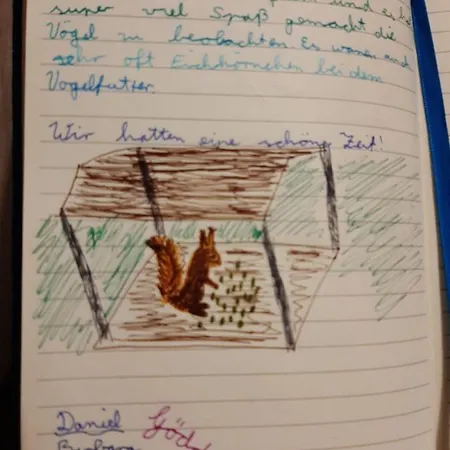 und es hat
super viel Spaß gemacht die
Vögel zu beobachten. Es waren auch
sehr oft Eichhörnchen bei dem
Vogelfutter.
Wir hatten eine schöne Zeit!
Daniel
Barbara